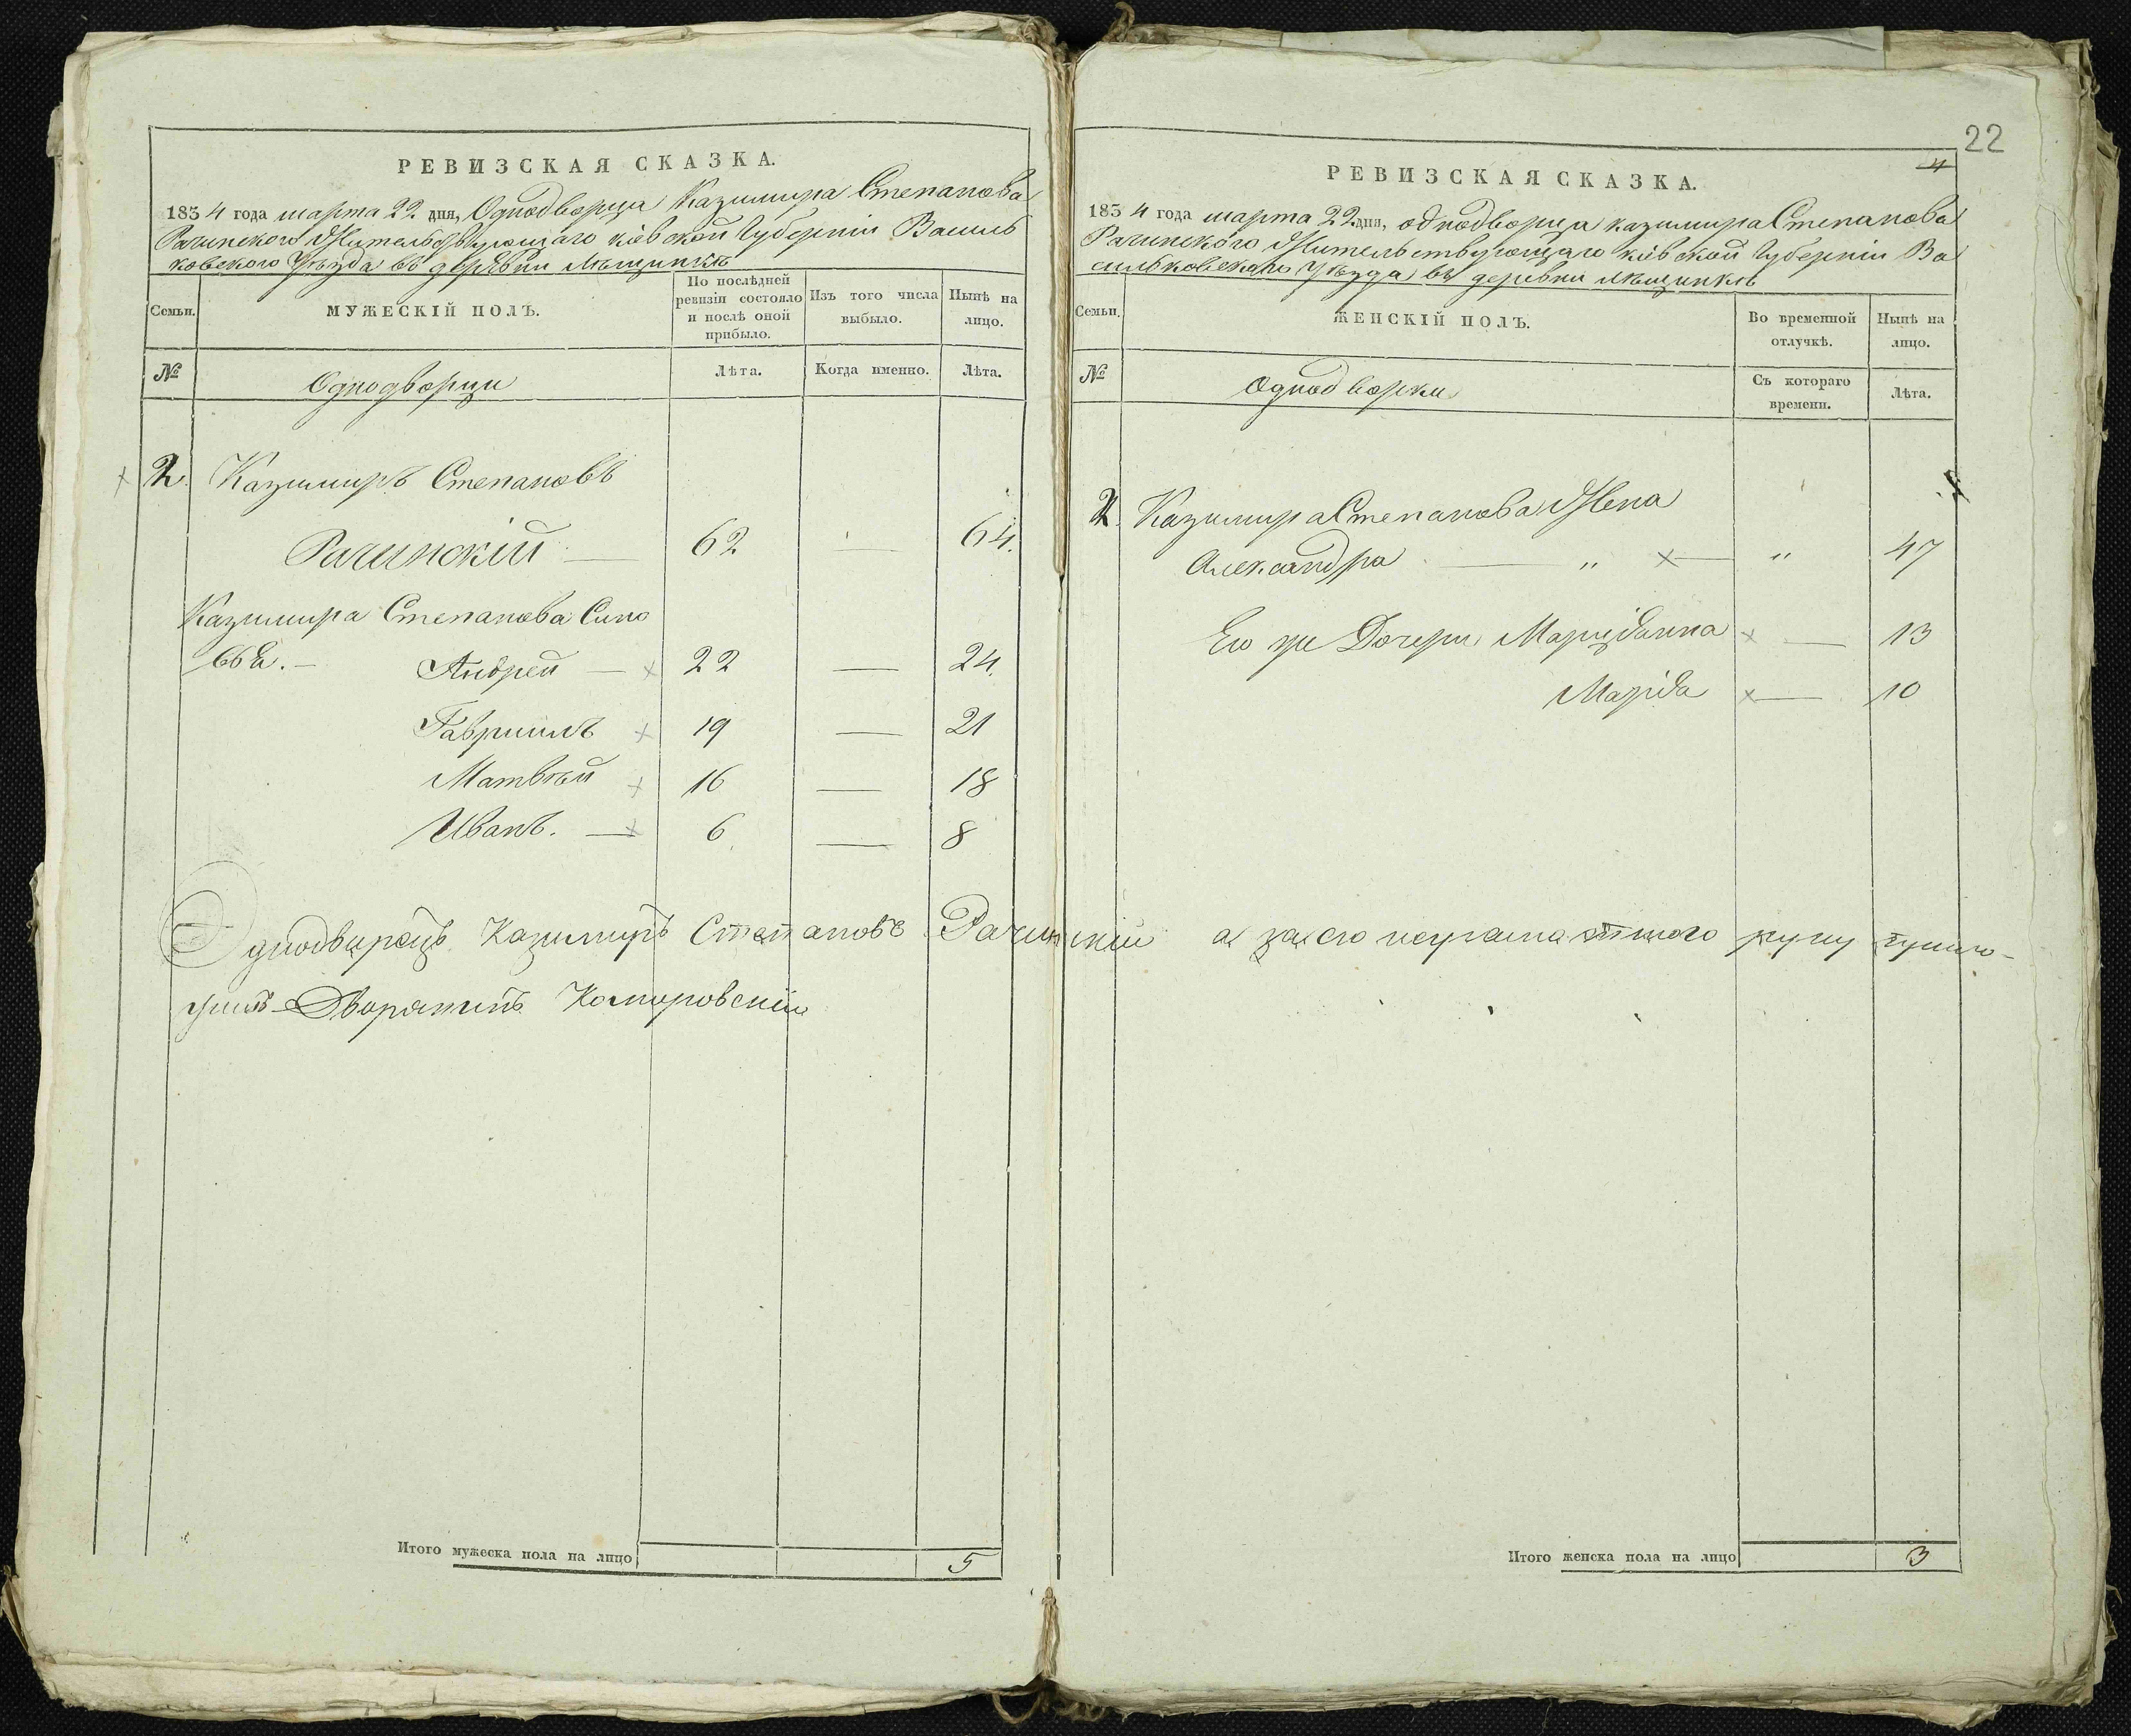 РЕВИЗСКАЯ СКАЗКА.
1834 года марта 22 дня, Однодворца Казимира Степанова
Рачинского Жительствующаго кіевской Губерніи Василь
ковского Уѣзда въ деревни
Семьи.
МУЖЕСКІЙ ПОЛЪ.
По послѣдней ревизіи состояло и послѣ оной прибыло.
Изъ того числа выбыло.
Нынѣ на лицо.
№
Однодворци
Лѣта.
Когда именно.
Лѣта.
2. Казимиръ Степановъ
Рачинскій — 62 — 64.
Казимира Степанова Сино
вья. — Андрей — 22 — 24.
Гавриилъ 19 — 21
Матвѣй 16 — 18
Иванъ. — 6 — 8
Однодворецъ Казимиръ Степановъ Рачинскій а за его неграматного руку
Дворянинъ Комаровскій
Итого мужеска пола на лицо 5
22
4
РЕВИЗСКАЯ СКАЗКА.
1834 года марта 22 дня, однодворца казимира Степанова
Рачинского Жительствующаго кіевской Губерніи Ва
сильковскаго Уѣзда въ деревни
Семьи.
ЖЕНСКІЙ ПОЛЪ.
Во временной отлучкѣ.
Нынѣ на лицо.
№
Однодворки
Съ котораго времени.
Лѣта.
2. Казимира Степанова Жена
Александра — „ — „ 47
Его же Дочери Маріянна — 13
Марія — 10
Итого женска пола на лицо 3